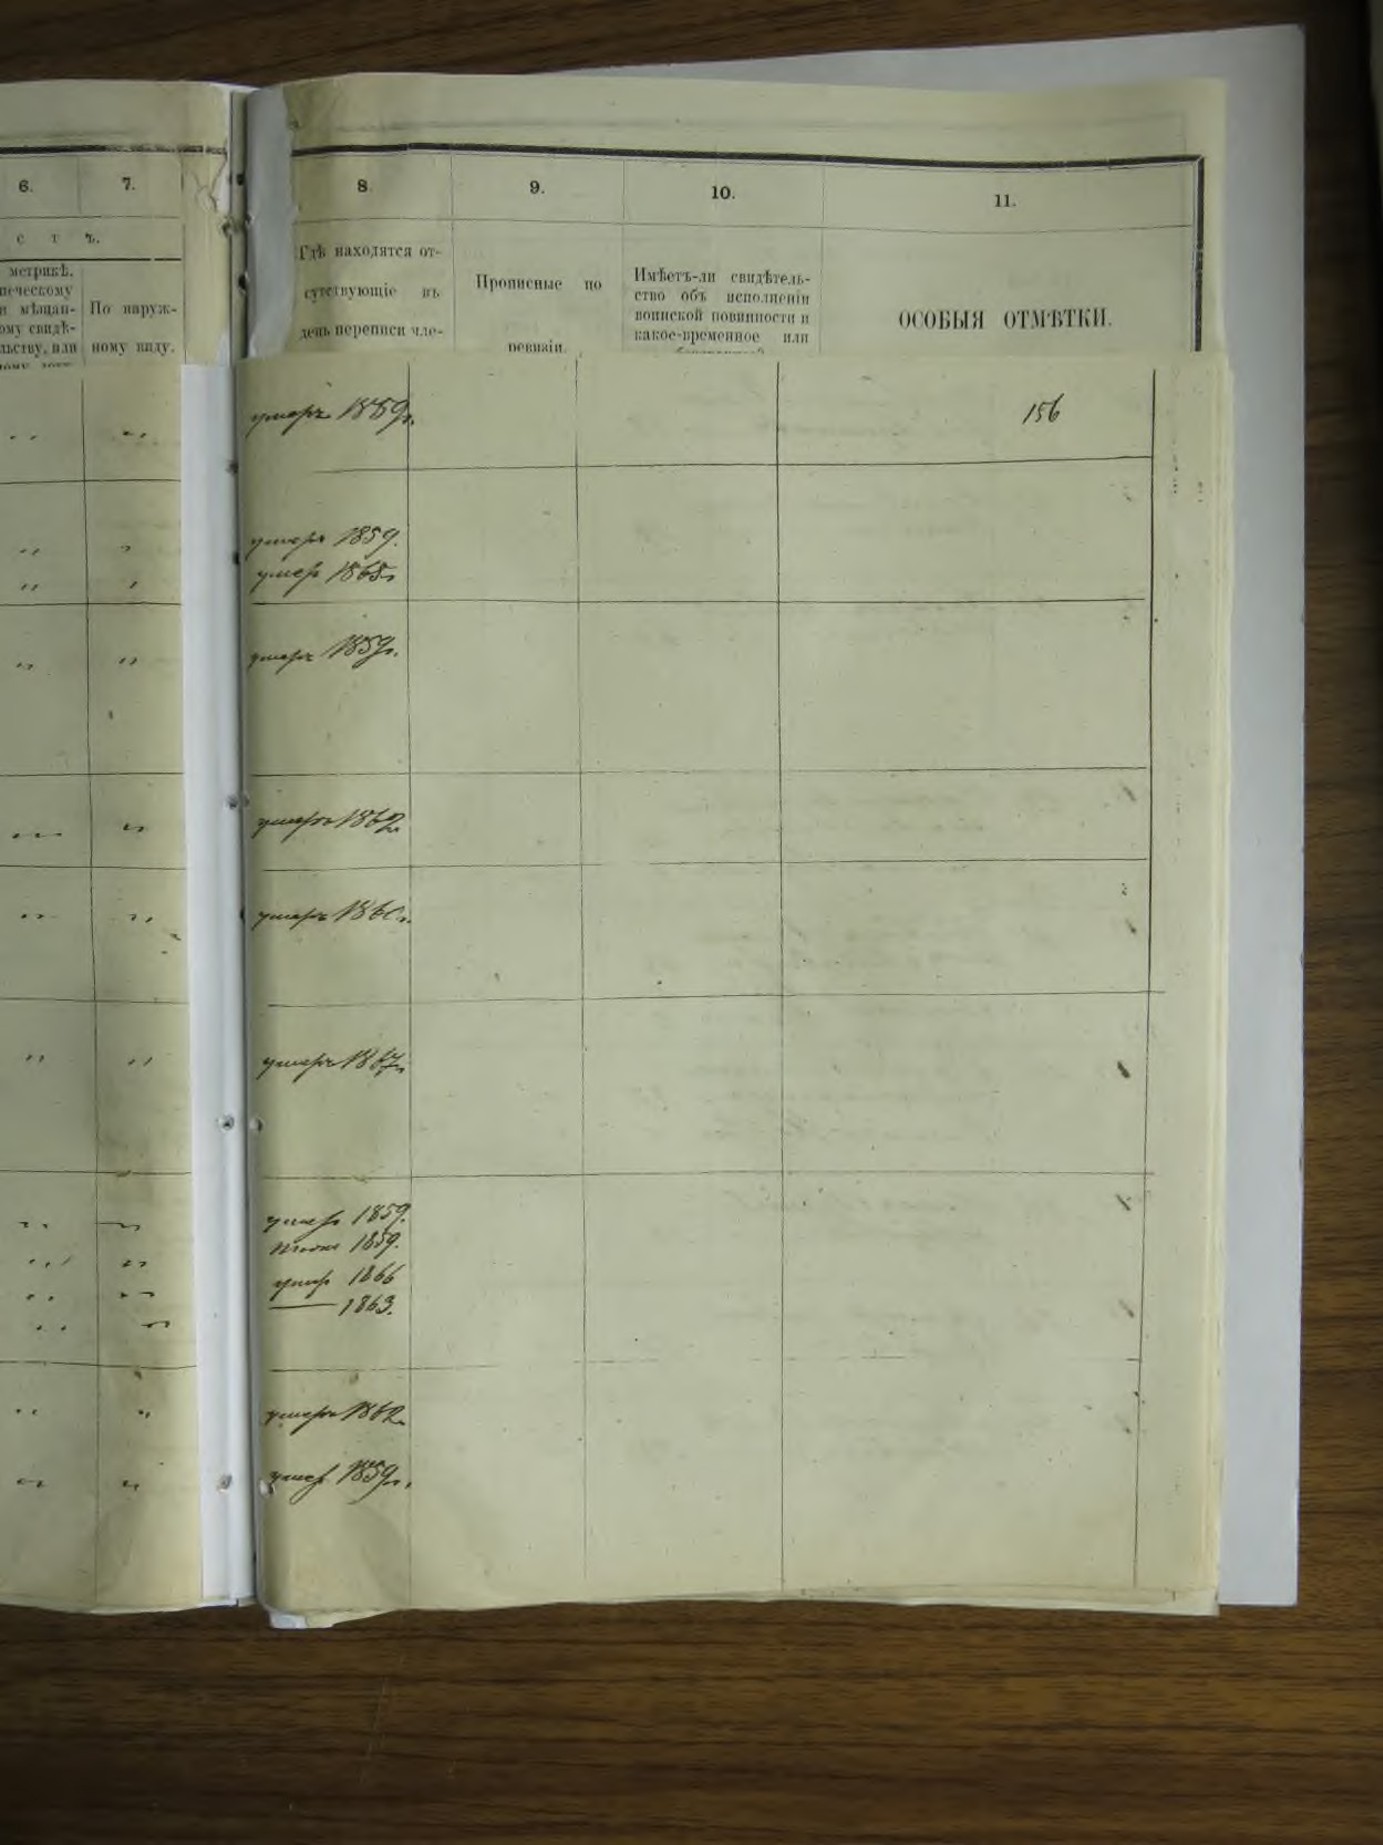 6.
7.
с т ъ.
метрикѣ.
ому свидѣ-
По наруж-
ному виду.
8
9.
10.
11.
Гдѣ находятся от-
сутствующіе въ
день переписи чле-
Прописные по
ревизіи.
Имѣетъ-ли свидѣтель-
ство объ исполненіи
воинской повинности и
какое-временное или
ОСОБЫЯ ОТМѢТКИ.
умеръ 1859г.
156
умеръ 1859.
умер 1868г
умеръ 1859г.
умеръ 1862г
умеръ 1860г.
умеръ 1867г
умеръ 1859.
1859.
умер 1866
1863.
умеръ 1862г
умер 1859г.